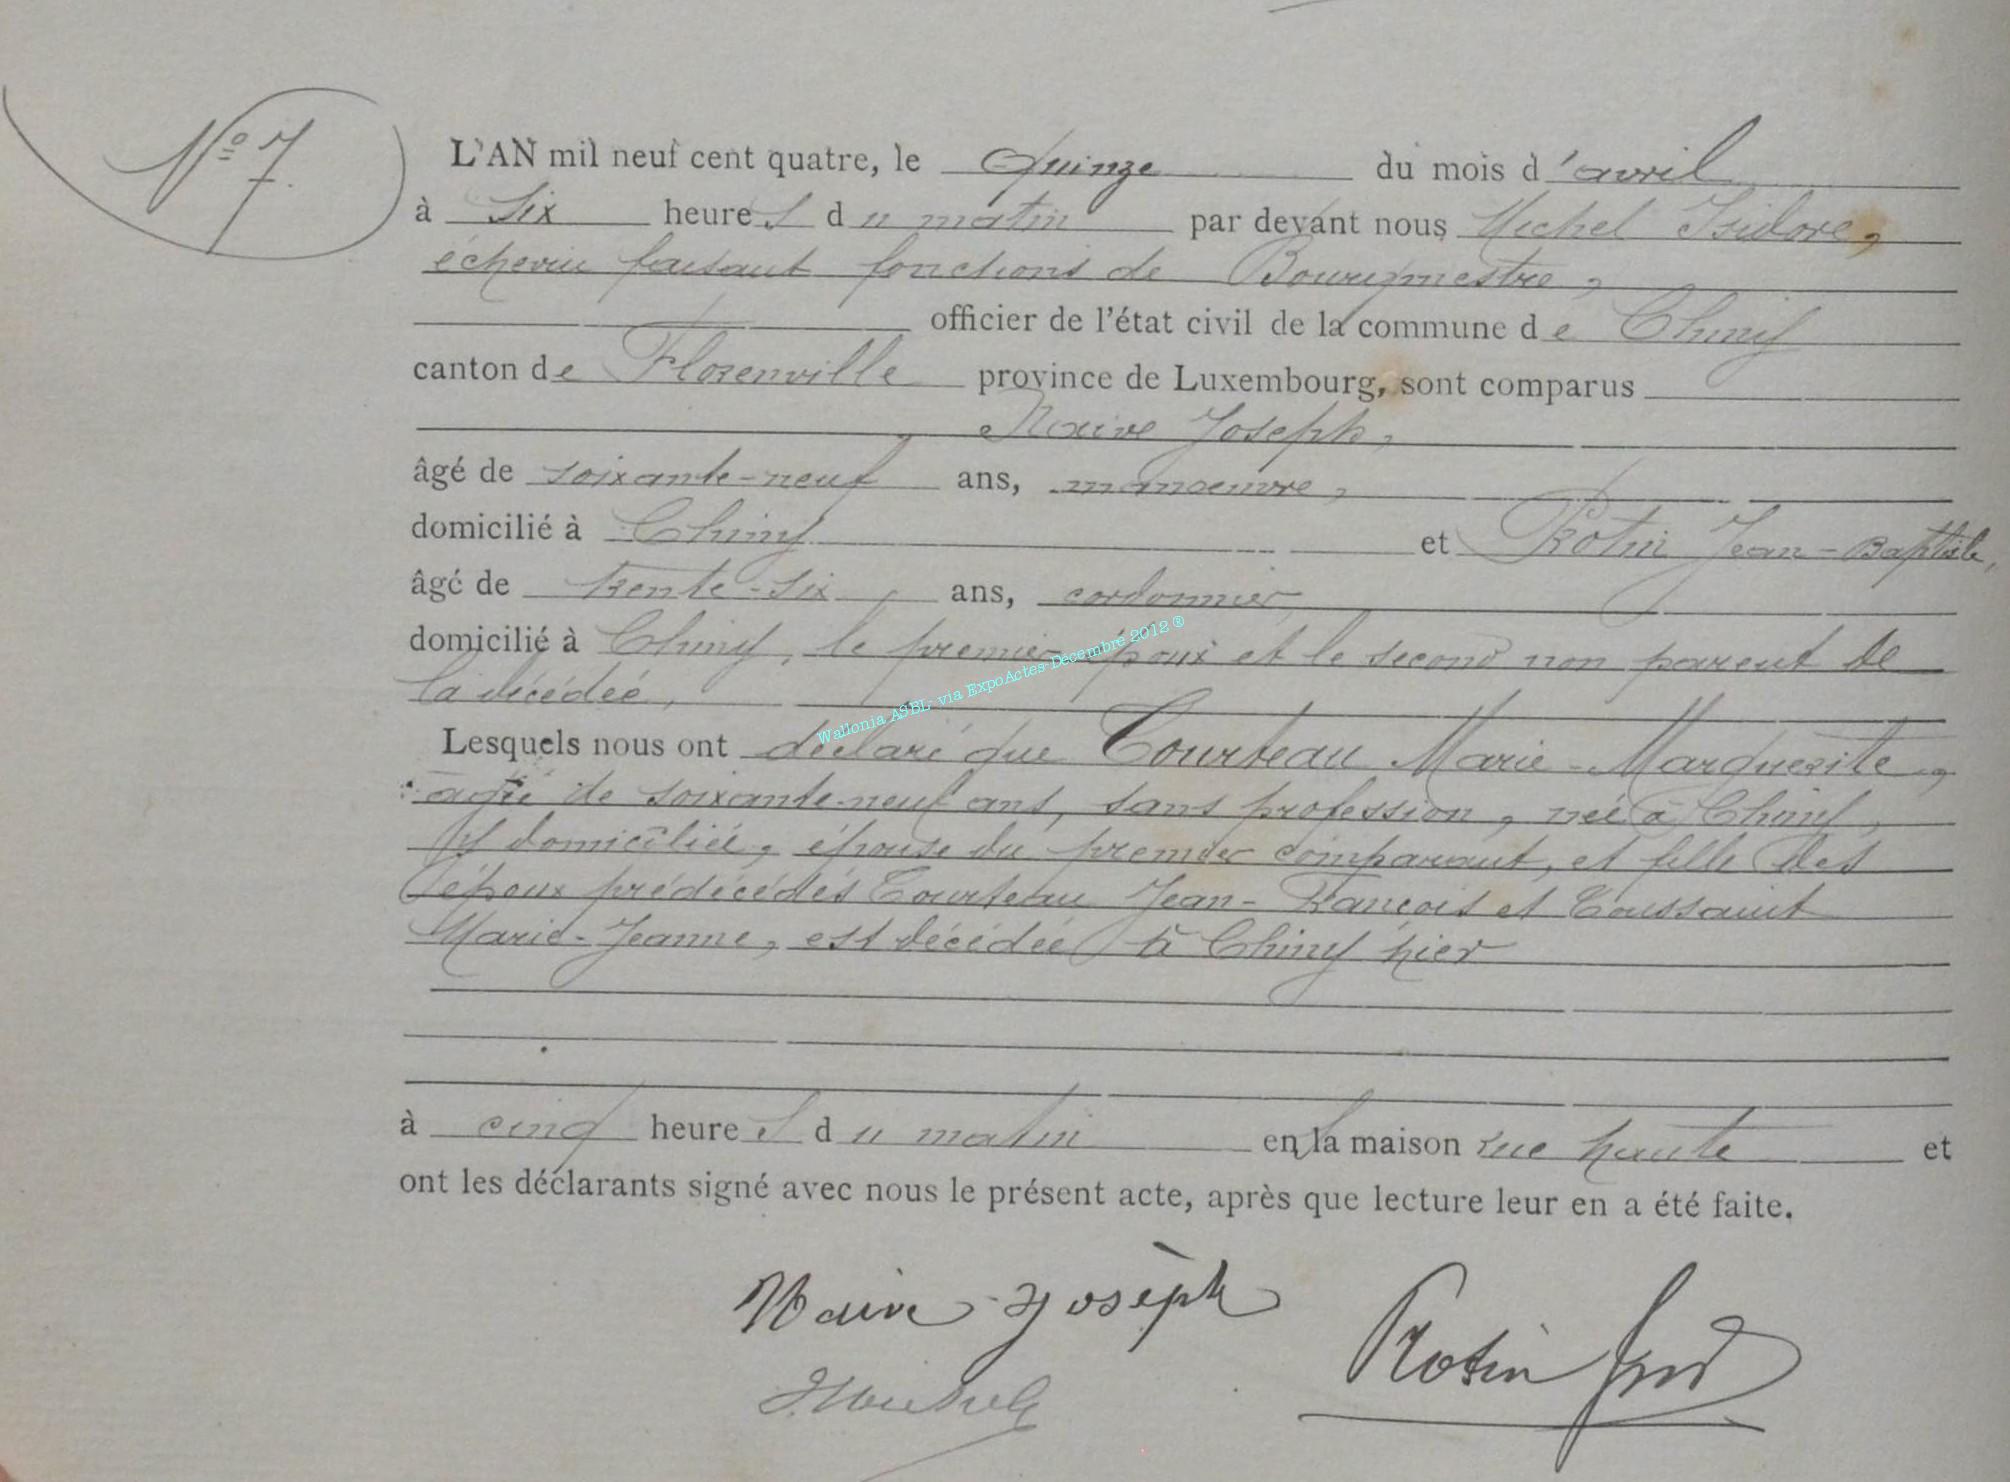 N° 7
L'AN mil neuf cent quatre, le Quinze du mois d'avril
à Six heures du matin par devant nous Michel Isidore,
échevin faisant fonctions de Bourgmestre,
officier de l'état civil de la commune de Chiny
canton de Florenville province de Luxembourg, sont comparus
Naive Joseph,
âgé de soixante-neuf ans, manoeuvre,
domicilié à Chiny et Rotin Jean-Baptiste,
âgé de trente-six ans, cordonnier
domicilié à Chiny, le premier époux et le second non parent de
la décédée,
Wallonia ASBL via ExpoActes-Décembre 2012 ®
Lesquels nous ont déclaré que Courteau Marie-Marguerite,
agée de soixante-neuf ans, sans profession, née à Chiny,
y domiciliée, épouse du premier comparant, et fille des
époux prédécédés Courteau Jean-François et Toussaint
Marie-Jeanne, est décédée à Chiny hier
à cinq heures du matin en la maison rue haute et
ont les déclarants signé avec nous le présent acte, après que lecture leur en a été faite.
Naive Joseph
Rotin
I. Michel